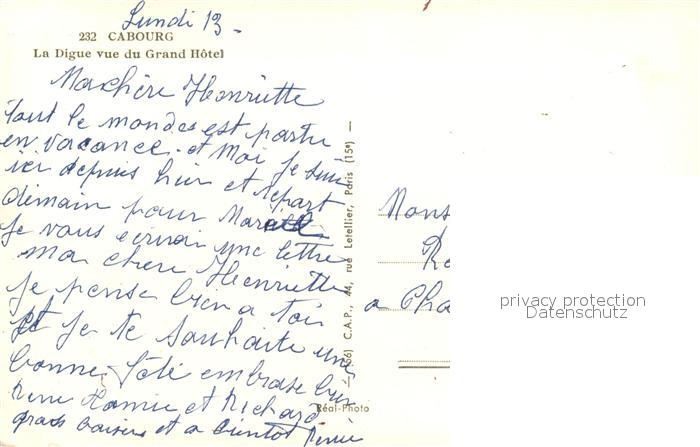 Lundi 13 -
232 CABOURG
La Digue vue du Grand Hôtel
Ma chère Henriette
tout le mondes est partu
en vacance. et moi je suis
ici depuis hier et repart
demain pour
Je vous écrirai une lettre
ma chere Henriette
je pense bien a toi
et je te souhaite une
bonne fete embrasse bien
et Richard
gross baisers et a bientot
Réal-Photo
(56) C.A.P., 44, rue Letellier, Paris (15e) —
Mons
a Cha
privacy protection
Datenschutz